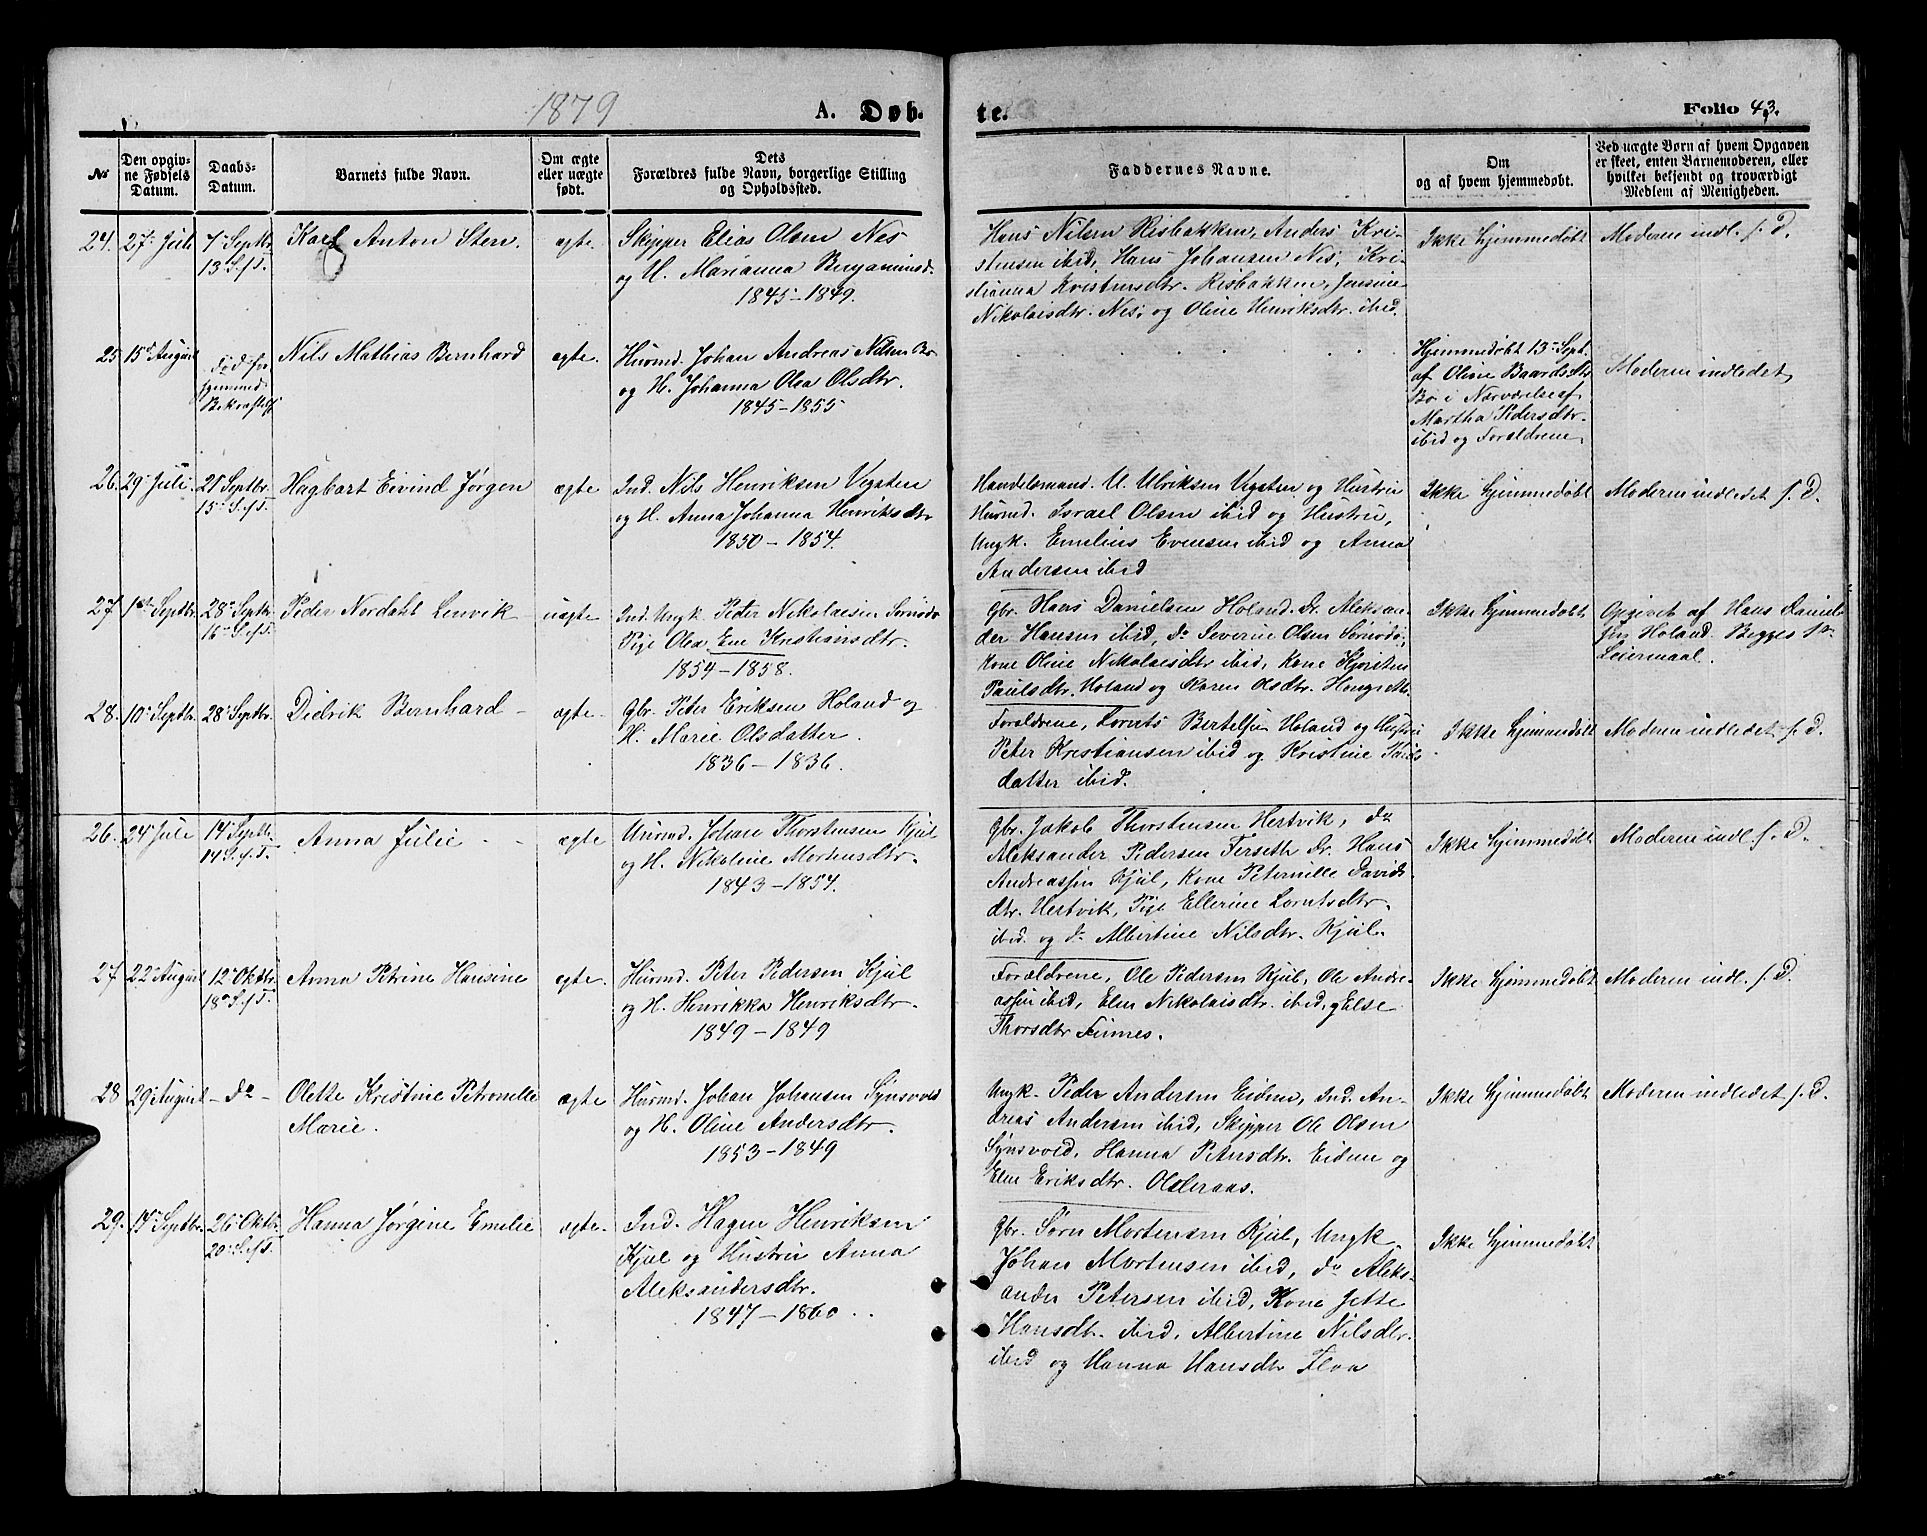 1879 A. Døb. te. Folio 43.
No
Den opgiv-
ne Fødsels
Datum.
Daabs-
Datum.
Barnets fulde Navn.
Om ægte
eller uægte
født.
Dets
Forældres fulde Navn, borgerlige Stilling
og Opholdssted.
Faddernes Navne.
Om
og af hvem hjemmedøbt.
Ved uægte Børn af hvem Opgaven
er skeet, enten Barnemoderen, eller
hvilket bekjendt og troværdigt
Medlem af Menigheden.
24. 27. Juli
7. Septbr.
13 S. f. T.
Karl Anton Sten.
ægte.
Skipper Elias Olsen Nes
og H. Marianna Benjaminsd.
1845-1849.
Hans Nilsen Risbakken, Anders Kri-
stensen ibid, Hans Johansen Nes, Kri-
stianna Kristensdtr. Risbakken, Jensine
Nikolaisdtr. Nes, og Oline Henriksdtr. ibid.
Ikke hjemmedøbt
Moderen indl. f. D.
25 15. August
Død før
hjemmed.
Bekræftelse
Nils Mathias Bernhard
ægte.
Huusmd. Johan Andreas Nilsen Bø
og H. Johanna Olea Olsdtr.
1845-1855
Hjemmedøbt 13. Sept.
af Oline Baardsdtr.
Bø i Nærværelse af
Martha Pedersdtr.
ibid og Forældrene,
Moderen indledet,
26. 29. Juli.
21. Septbr.
15. S. f. T.
Hagbart Eivind Jørgen
ægte
Ind. Nils Henriksen Vegsten
og H. Anna Johanna Henriksdtr
1850-1854.
Handelsmand. U. Ulriksen Vegsten og Hustru
Huusmd. Israel Olsen ibid og Hustru,
Ungk. Emelius Evensen ibid og Anna
Andersen ibid
Ikke hjemmedøbt
Moderen indledet f. D.
27. 1. Septbr.
28. Septbr.
16. S. f. T.
Peder Nordahl Lenvik
uægte
Ind. Ungk. Peter Nikolaisen Sørnodø
Pige Olea Ene Kristiansdtr.
1854-1858.
Gbr. Hans Danielsen Holand. Do. Aleksan-
der Hansen ibid, do Severine Olsen Sørnodø,
Kone Oline Nikolaisdtr ibid, Kone Kjersten
Paulsdtr. Holand og Karen Olsdtr.
Ikke hjemmedøbt
Opgivet af Hans Daniel-
sen Holand. Begges 1.
Leiermaal.
28. 10. Septbr.
28. Septbr.
Didrik Bernhard -
ægte.
Gbr. Peter Eriksen Holand og
H. Marie Olsdatter.
1836-1836.
Forældrene, Lornts Bertelsen Holand og Hustru
Peter Kristiansen ibid og Kristine Pauls
datter ibid.
Ikke hjemmedøbt
Moderen indledet f. D.
26. 24. Juli
14. Septbr.
14 S. f. T.
Anna Julie - -
ægte
Huusmd. Johan Thorstensen Kjul
og H. Nikoline Mortensdtr.
1843-1854.
Gbr. Jakob Thorstensen Hertvik, do
Aleksander Pedersen Ferseth do. Hans
Andreassen Kjul, Kone Peternille Davids
dtr. Hertvik, Pige Ellerine Lorntsdtr.
ibid. og do Albertine Nilsdtr. Kjul.
Ikke hjemmedøbt
Moderen indl. f. D.
27 22. August
12. Oktbr.
18. S. f. T.
Anna Petrine Hansine
ægte.
Huusmd. Peter Pedersen Kjul
og H. Henrikka Henriksdtr.
1849-1849
Forældrene, Ole Pedersen Kjul, Ole Andre-
assen ibid, Elen Nikolaisdtr. ibid, og Else
Thorsdtr Finnes.
Ikke hjemmedøbt
Moderen indl. f. D.
28 29. August
- do -
Olette Kristine Petronelle
Marie.
ægte
Huusmd. Johan Johansen Synsvold
og H. Oline Andersdtr.
1853-1849
Ungk. Peder Andersen Eidem, Ind. An-
dreas Andersen ibid, Skipper Ole Olsen
Synsvold, Hanna Petersdtr. Eidem og
Elen Eriksdtr. Olderaas.
Ikke hjemmedøbt
Moderen indledet f. D.
29. 14. Septbr.
26. Oktbr.
20. S. f. T.
Hanna Jørgine Emelie
ægte.
Ind. Hagen Henriksen
Kjul og Hustru Anna
Aleksandersdtr.
1847-1860.
Gbr. Sørn Mortensen Kjul, Ungk.
Johan Mortensen ibid, do Aleks-
ander Petersen ibid, Kone Jette
Hansdtr. ibid, Albertine Nilsdtr.
ibid og Hanna Hansdtr Floa
Ikke hjemmedøbt